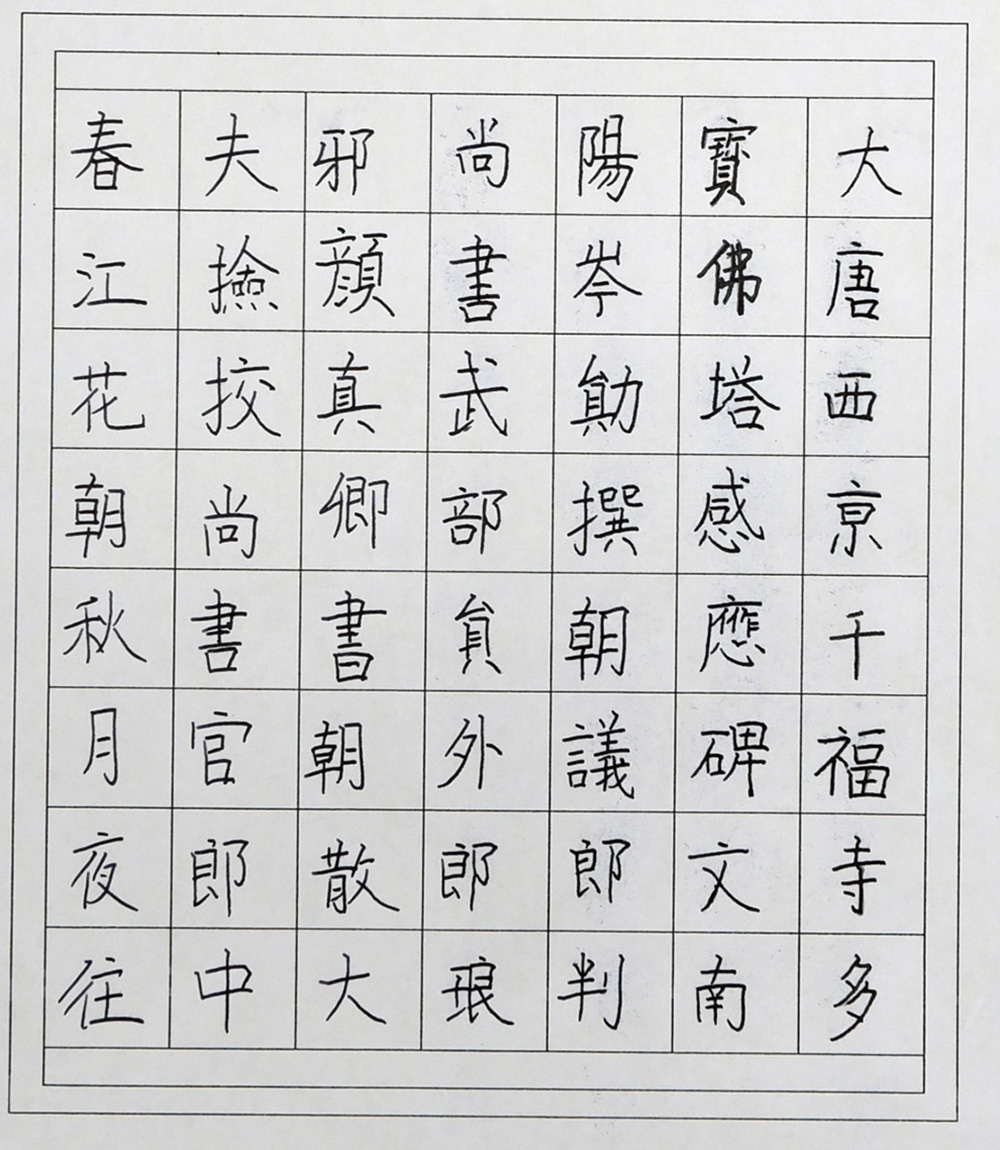 大唐西亰千福寺多
寶佛塔感應碑文南
陽岑勛撰朝議郎判
尚書武部貟外郎琅
邪顔真卿書朝散大
夫撿挍尚書官郎中
春江花朝秋月夜往